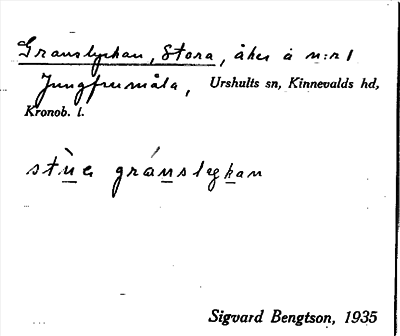 Granslyckan, Stora, åker å n:r 1
Jungfrumåla, Urshults sn, Kinnevalds hd,
Kronob. l.
gránslykan
Sigvard Bengtson, 1935